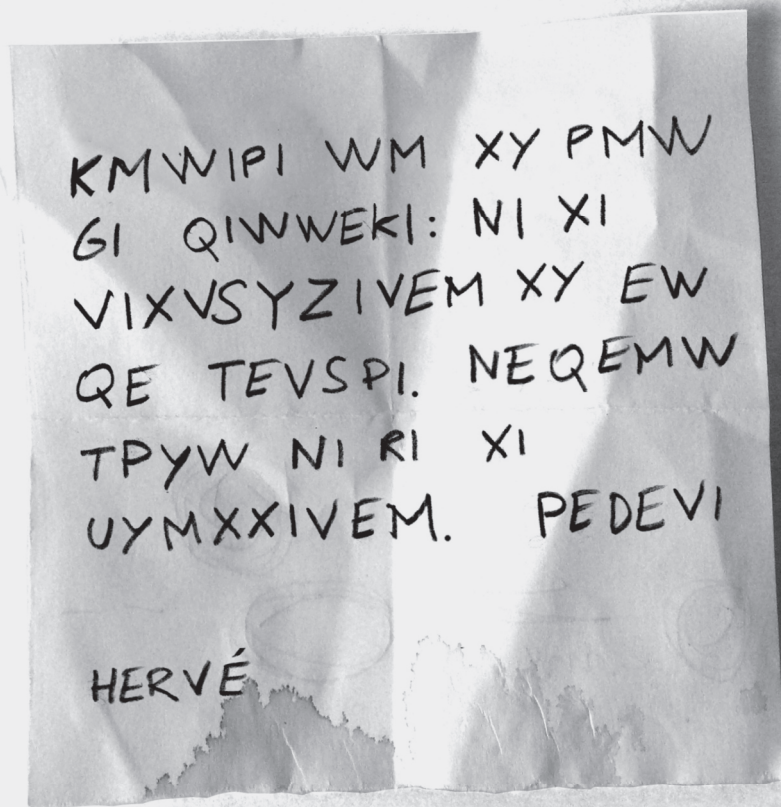 KMWIPI WM XY PMW
GI QIWWEKI: NI XI
VIXVSYZIVEM XY EW
QE TEVSPI. NEQEMW
TPYW NI RI XI
UYMXXIVEM. PEDEVI
HERVÉ